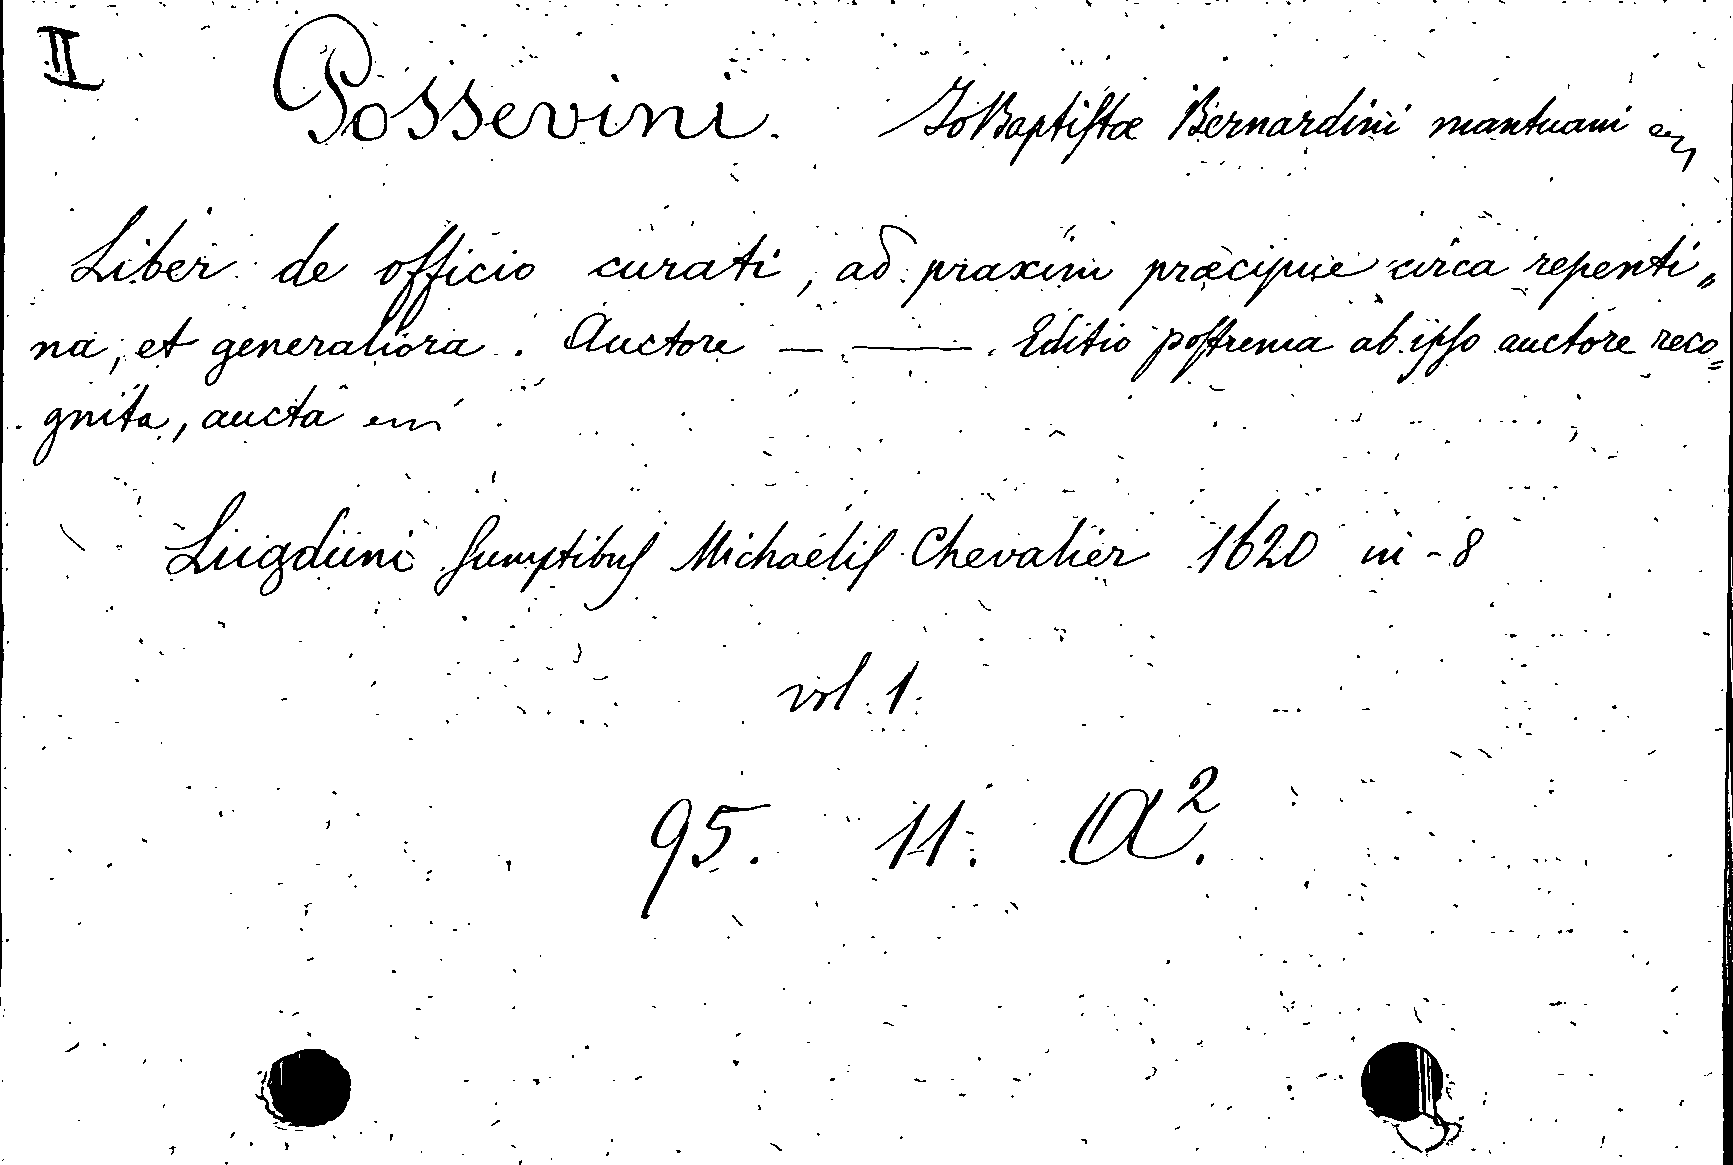 II
Possevini. JoBaptistæ Bernardini mantuani
Liber de officio curati, ad praxim præcipue circa repenti„
na, et generaliora. Auctore — ——. Editio postrema ab ipso auctore reco=
gnita, aucta
Lugduni sumptibus Michaelis Chevalier 1620 in-8
vol. 1.
95. 11. A².